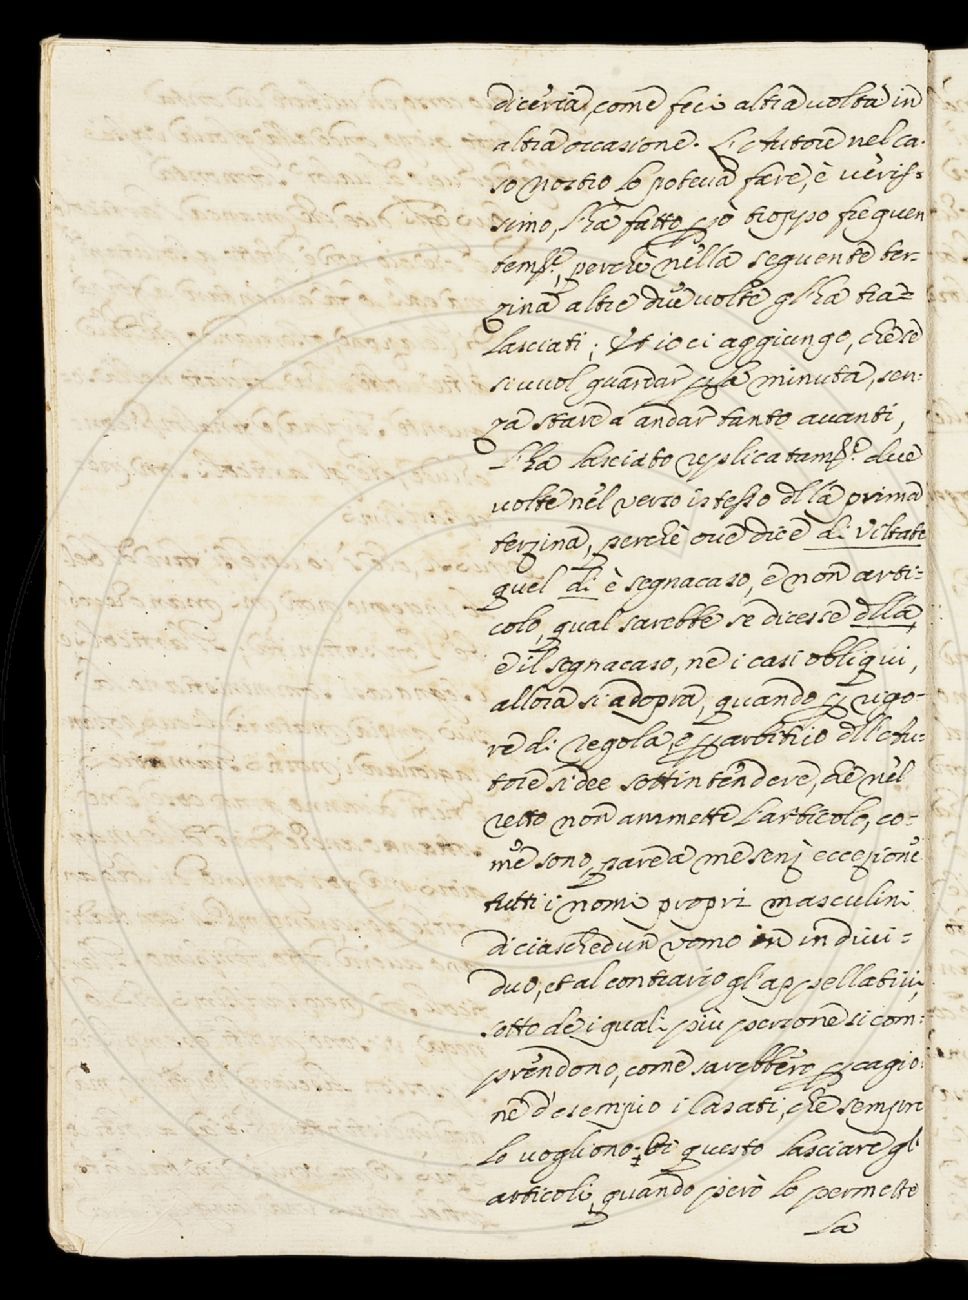 diceria, come feci altra volta in
altra occasione. L'Autore nel ca-
so nostro lo poteva fare, è veris-
simo, l'ha fatto però troppo frequen
temte, perche nella seguente ter-
zina altre due volte gl'ha tra-
lasciati; Et io ci aggiungo, che se
si vuol guardar p la minuta, sen-
za stare a andar tanto avanti,
l'ha lasciato replicatamte due
volte nel verso istesso dlla prima
terzina, perchè ove dice di viltate
quel di è segnacaso, e non arti-
colo, qual sarebbe se dicesse dlla,
e il segnacaso, ne i casi obliqui,
allora si adopra, quando p rigo-
re di regola, e p arbitrio dll'Au-
tore si dee sottintendere, che nel
retto non ammette l'articolo, co-
me sono, pare a me senz eccezione
tutti i nomi propri masculini
di ciaschedun uomo in indivi-
duo, et al contrario gl'appellativi,
sotto de i quali più persone si com-
prendono, come sarebbero p cagio-
ne d'esempio i Casati, che sempre
lo vogliono; Di questo lasciare gl'
articoli, quando però lo permette
la